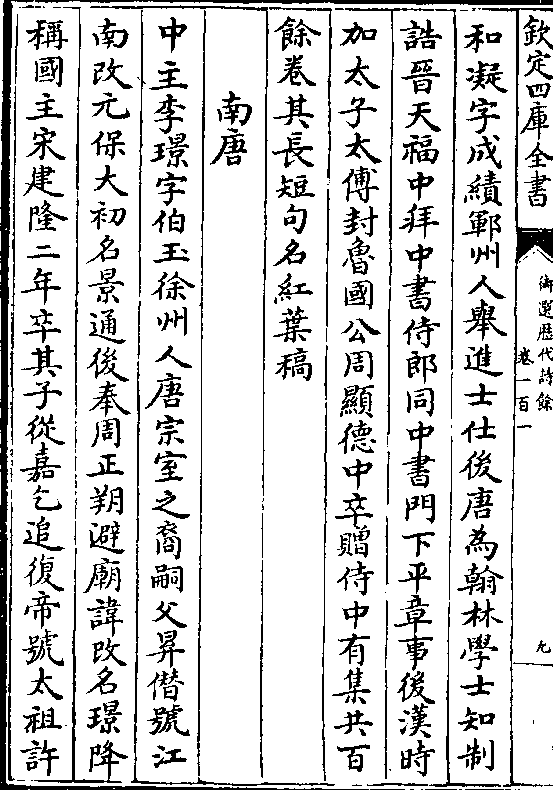 欽定四庫全書
御選歴代詩餘
卷一百一
九
和凝字成績鄆州人舉進士仕後唐為翰林學士知制
誥晉天福中拜中書侍郎同中書門下平章事後漢時
加太子太傅封魯國公周顯德中卒贈侍中有集共百
餘卷其長短句名紅葉稿
南唐
中主李璟字伯玉徐州人唐宗室之裔嗣父昇僣號江
南改元保大初名景通後奉周正朔避廟諱改名璟降
稱國主宋建隆二年卒其子從嘉乞追復帝號太祖許